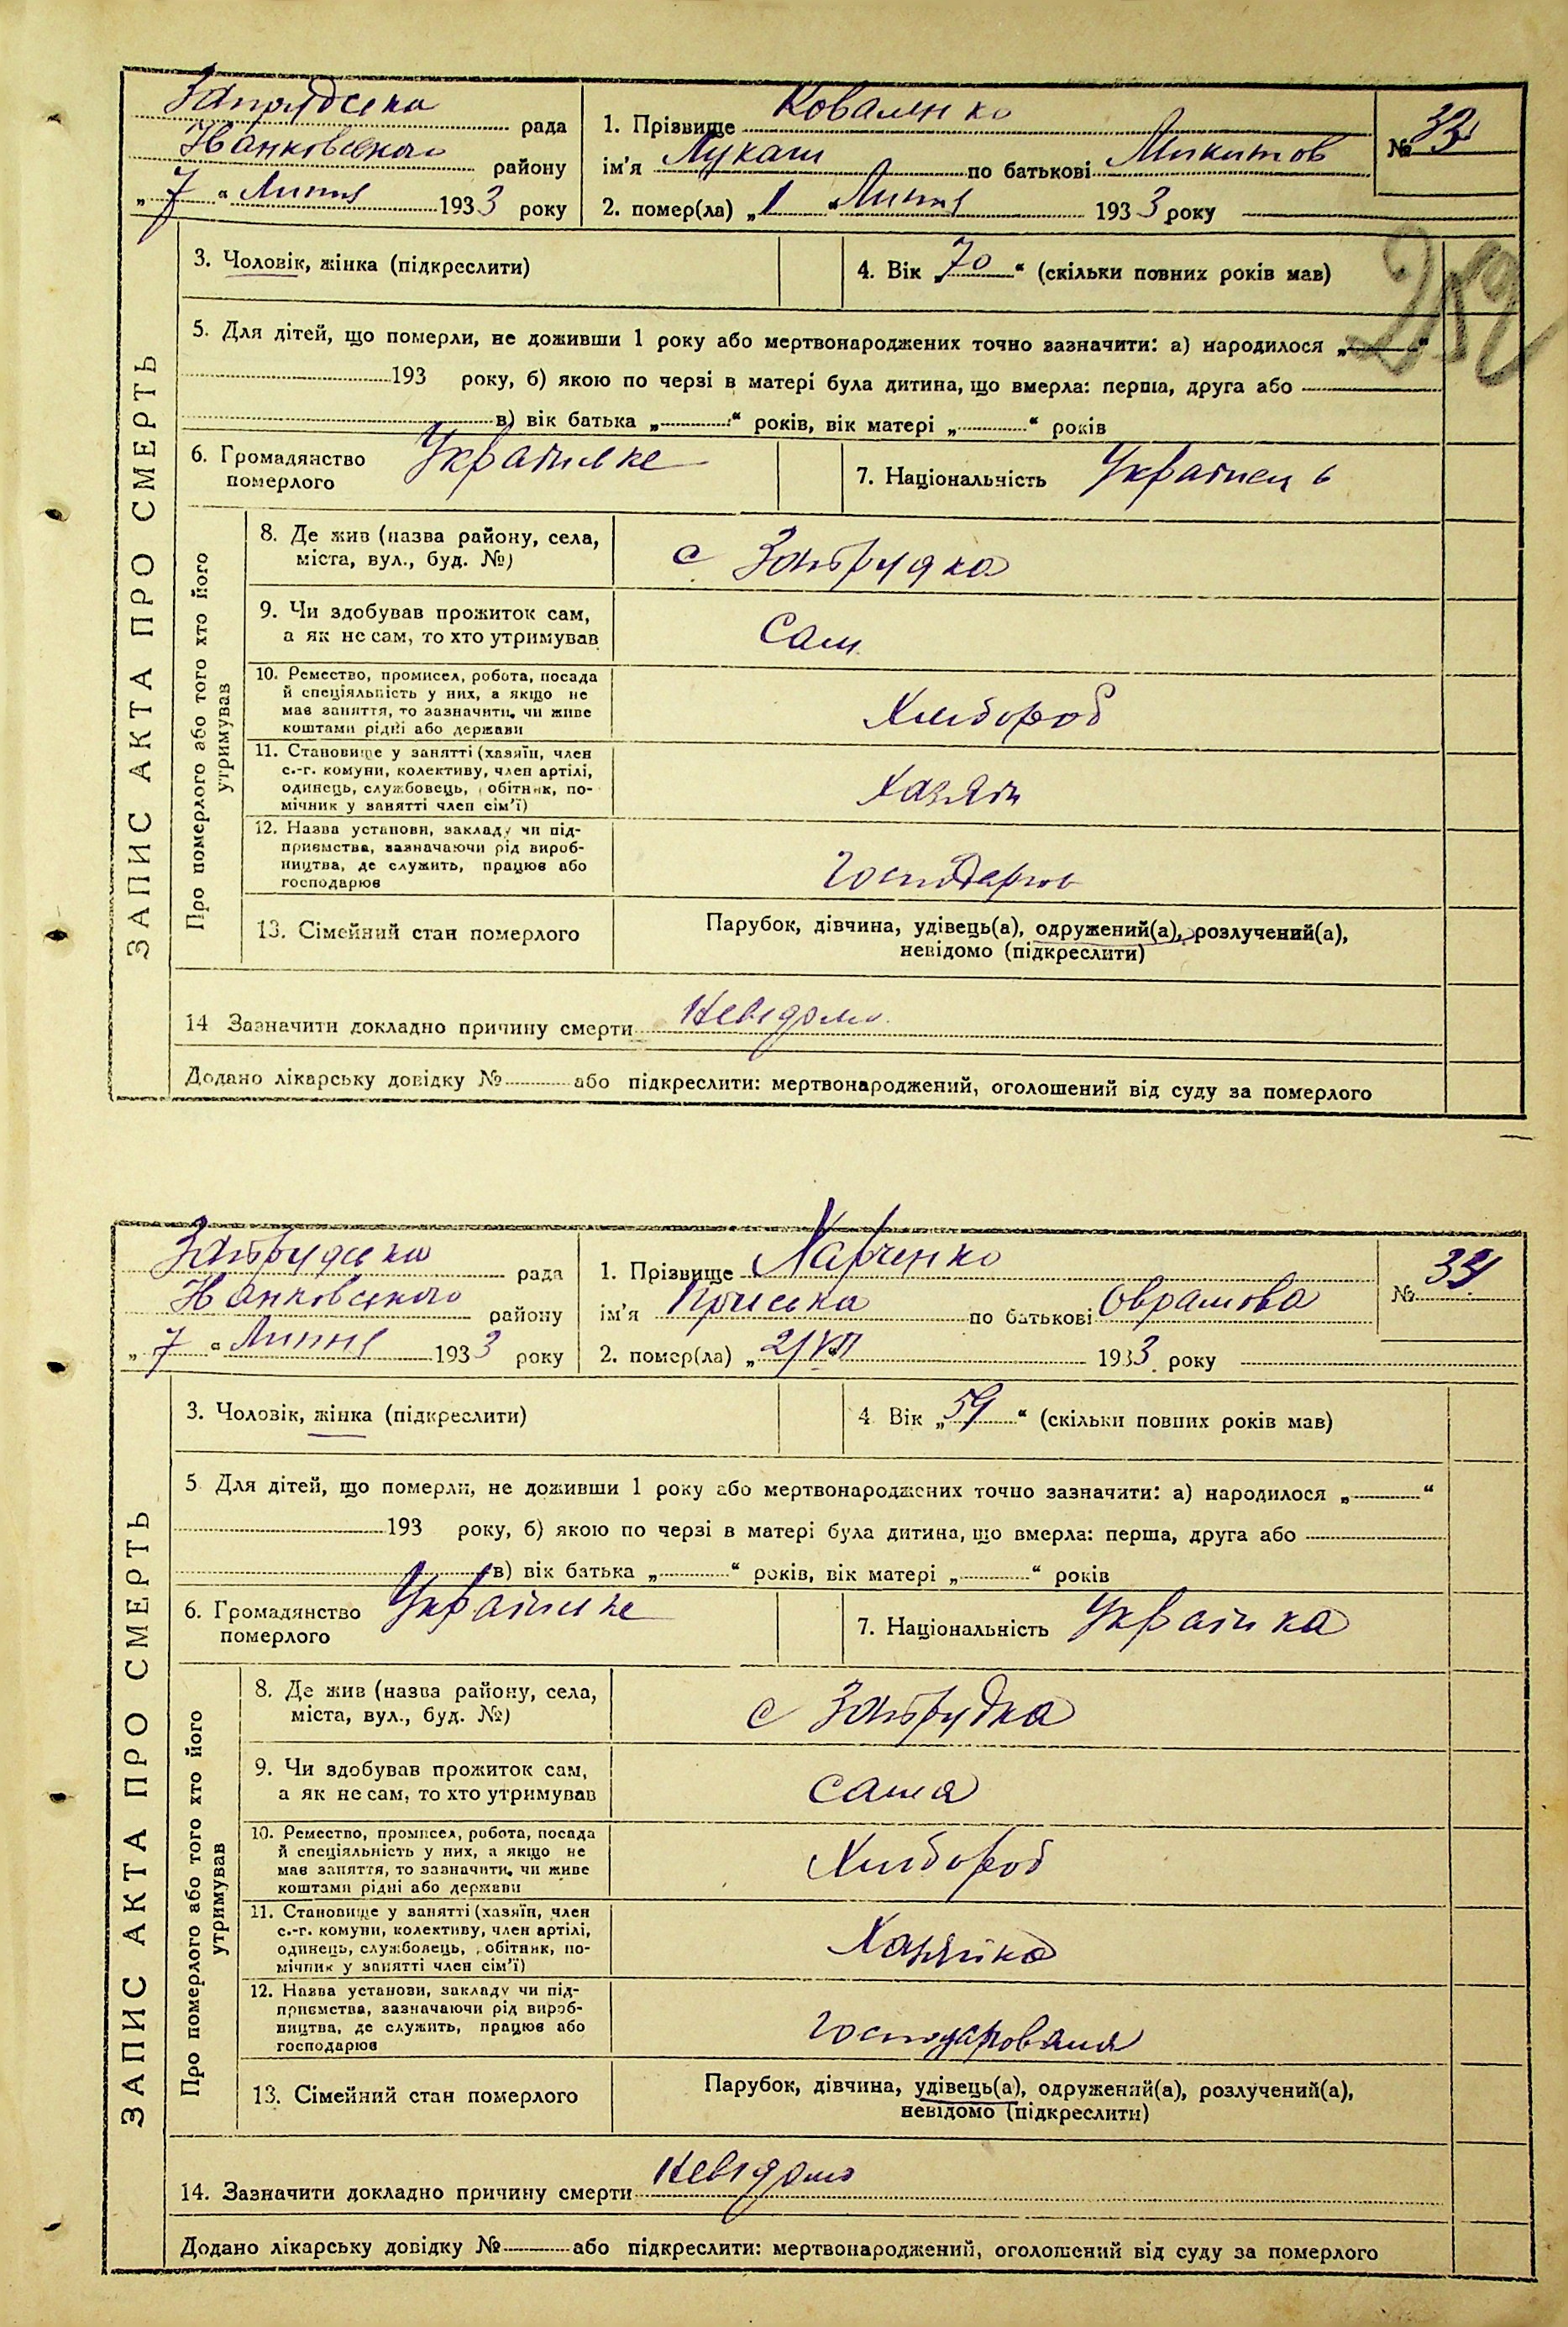 ЗАПИС АКТА ПРО СМЕРТЬ
рада
Іванковського району
„7“ Липня 1933 року
1. Прізвище Коваленко
ім'я Лукаш по батькові Микитов
2. помер(ла) „1“ Липня 1933 року
№
252
3. Чоловік, жінка (підкреслити)
4. Вік „70“ (скільки повних років мав)
5. Для дітей, що померли, не доживши 1 року або мертвонароджених точно зазначити: а) народилося „ “
193 року, б) якою по черзі в матері була дитина, що вмерла: перша, друга або
в) вік батька „ “ років, вік матері „ “ років
6. Громадянство Українське
померлого
7. Національність Українець
Про померлого або того хто його
утримував
8. Де жив (назва району, села,
міста, вул., буд. №)
с Запрудка
9. Чи здобував прожиток сам,
а як не сам, то хто утримував
Сам
10. Ремество, промисел, робота, посада
й спеціяльність у них, а якщо не
мав заняття, то зазначити, чи живе
коштами рідні або держави
Хлібороб
11. Становище у занятті (хазяїн, член
с.-г. комуни, колективу, член артілі,
одинець, службовець, обітник, по-
мічник у занятті член сім'ї)
Хазяїн
12. Назва установи, закладу чи під-
приємства, зазначаючи рід вироб-
ництва, де служить, працює або
господарює
13. Сімейний стан померлого
Парубок, дівчина, удівець(а), одружений(а), розлучений(а),
невідомо (підкреслити)
14 Зазначити докладно причину смерти Невідомо
Додано лікарську довідку № або підкреслити: мертвонароджений, оголошений від суду за померлого
ЗАПИС АКТА ПРО СМЕРТЬ
рада
Іванковського району
„7“ Липня 1933 року
1. Прізвище Харченко
ім'я Приська по батькові Оврамова
2. помер(ла) „2/VII 1933 року
№
3. Чоловік, жінка (підкреслити)
4 Вік „59“ (скільки повних років мав)
5 Для дітей, що померли, не доживши 1 року або мертвонароджених точно зазначити: а) народилося „ “
193 року, б) якою по черзі в матері була дитина, що вмерла: перша, друга або
в) вік батька „ “ років, вік матері „ “ років
6. Громадянство Українське
померлого
7. Національність Українка
Про померлого або того хто його
утримував
8. Де жив (назва району, села,
міста, вул., буд. №)
с Запрудка
9. Чи здобував прожиток сам,
а як не сам, то хто утримував
сама
10. Ремество, промисел, робота, посада
й спеціяльність у них, а якщо не
мав заняття, то зазначити, чи живе
коштами рідні або держави
Хлібороб
11. Становище у занятті (хазяїн, член
с.-г. комуни, колективу, член артілі,
одинець, службовець, обітник, по-
мічник у занятті член сім'ї)
Хазяйка
12. Назва установи, закладу чи під-
приємства, зазначаючи рід вироб-
ництва, де служить, працює або
господарює
13. Сімейний стан померлого
Парубок, дівчина, удівець(а), одружений(а), розлучений(а),
невідомо (підкреслити)
14. Зазначити докладно причину смерти невідомо
Додано лікарську довідку № або підкреслити: мертвонароджений, оголошений від суду за померлого